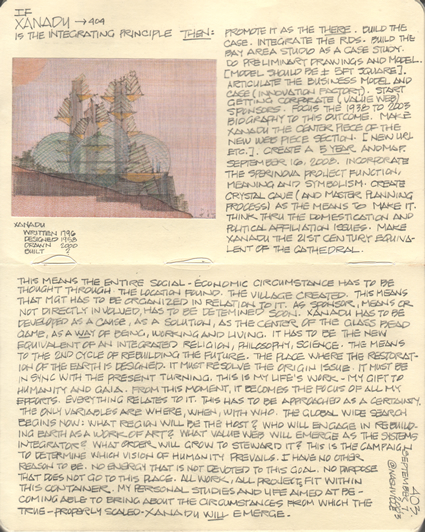 IF
XANADU → 404
IS THE INTEGRATING PRINCIPLE THEN:
PROMOTE IT AS THE THERE. BUILD THE
CASE. INTEGRATE THE RDS. BUILD THE
BAY AREA STUDIO AS A CASE STUDY.
DO PRELIMINARY DRAWINGS AND MODEL.
[MODEL SHOULD BE ± 5FT SQUARE].
ARTICULATE THE BUSINESS MODEL AND
CASE (INNOVATION FACTORY). START
GETTING CORPORATE (VALUE WEB)
SPONSORS. FOCUS THE 1938 TO 2003
BIOGRAPHY TO THIS OUTCOME. MAKE
XANADU THE CENTER PIECE OF THE
NEW WEB PIECE SECTION. [NEW URL
ETC.]. CREATE A 5 YEAR ANDMAP.
SEPTEMBER 16, 2008. INCORPORATE
THE PROJECT FUNCTION,
MEANING AND SYMBOLISM. CREATE
CRYSTAL CAVE (AND MASTER PLANNING
PROCESS) AS THE MEANS TO MAKE IT.
THINK THRU THE DOMESTICATION AND
POLITICAL AFFILIATION ISSUES. MAKE
XANADU THE 21ST CENTURY EQUIVA-
LENT OF THE CATHEDRAL.
XANADU
WRITTEN 1796
DESIGNED
DRAWN
BUILT ?
THIS MEANS THE ENTIRE SOCIAL-ECONOMIC CIRCUMSTANCE HAS TO BE
THOUGHT THROUGH. THE LOCATION FOUND. THE VILLAGE CREATED. THIS MEANS
THAT MGT HAS TO BE ORGANIZED IN RELATION TO IT. AS SPONSOR, MEANS OR
NOT DIRECTLY INVOLVED, HAS TO BE DETEMINED SOON. XANADU HAS TO BE
DEVELOPED AS A CAUSE, AS A SOLUTION, AS THE CENTER OF THE GLASS BEAD
GAME, AS A WAY OF BEING, WORKING AND LIVING. IT HAS TO BE THE NEW
EQUIVALENT OF AN INTEGRATED RELIGION, PHILOSOPHY, SCIENCE. THE MEANS
TO THE 2ND CYCLE OF REBUILDING THE FUTURE. THE PLACE WHERE THE RESTORAT-
ION OF THE EARTH IS DESIGNED. IT MUST RESOLVE THE ORIGIN ISSUE. IT MUST BE
IN SYNC WITH THE PRESENT TURNING. THIS IS MY LIFE'S WORK - MY GIFT TO
HUMANITY AND GAIA. FROM THIS MOMENT, IT BECOMES THE FOCUS OF ALL MY
EFFORTS. EVERYTHING RELATES TO IT. THIS HAS TO BE APPROACHED AS A CERTAINTY.
THE ONLY VARIABLES ARE WHERE, WHEN, WITH WHO. THE GLOBAL WIDE SEARCH
BEGINS NOW: WHAT REGION WILL BE THE HOST? WHO WILL ENGAGE IN REBUILD-
ING EARTH AS A WORK OF ART? WHAT VALUE WEB WILL EMERGE AS THE SYSTEMS
INTEGRATOR? WHAT ORDER WILL GROW TO STEWARD IT? THIS IS THE CAMPAIGN
TO DETERMINE WHICH VISION OF HUMANITY PREVAILS. I HAVE NO OTHER
REASON TO BE. NO ENERGY THAT IS NOT DEVOTED TO THIS GOAL. NO PURPOSE
THAT DOES NOT GO TO THIS PLACE. ALL WORK, ALL PROJECTS, FIT WITHIN
THIS CONTAINER. MY PERSONAL STUDIES AND LIFE AIMED AT BE-
COMING ABLE TO BRING ABOUT THE CIRCUMSTANCES FROM WHICH THE
TRUE - PROPERLY SCALED - XANADU WILL EMERGE.
403
SEPTEMBER